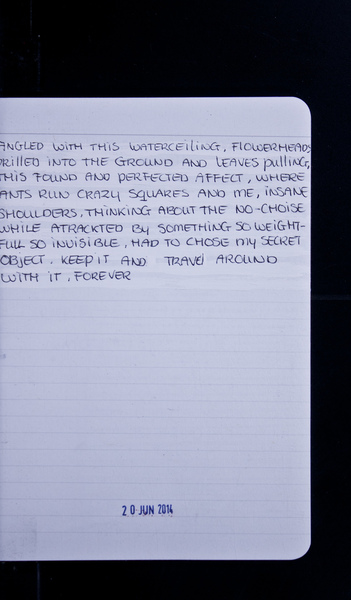 ANGLED WITH THIS WATERCEILING, FLOWERHEADS
DRILLED INTO THE GROUND AND LEAVES PULLING,
THIS FOUND AND PERFECTED AFFECT, WHERE
ANTS RUN CRAZY SQUARES AND ME, INSANE
SHOULDERS, THINKING ABOUT THE NO-CHOISE
WHILE ATRACKTED BY SOMETHING SO WEIGHT-
FULL SO INVISIBLE, HAD TO CHOSE MY SECRET
OBJECT. KEEP IT AND TRAVEL AROUND
WITH IT, FOREVER
20 JUN 2014